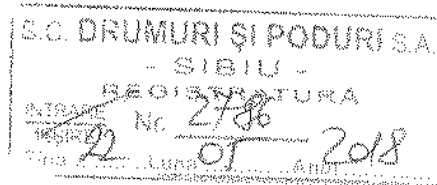 S.C. DRUMURI ȘI PODURI S.A.
- SIBIU -
REGISTRATURA
INTRARE
IEȘIRE Nr. 2786
Ziua 22 Luna 05 Anul 2018